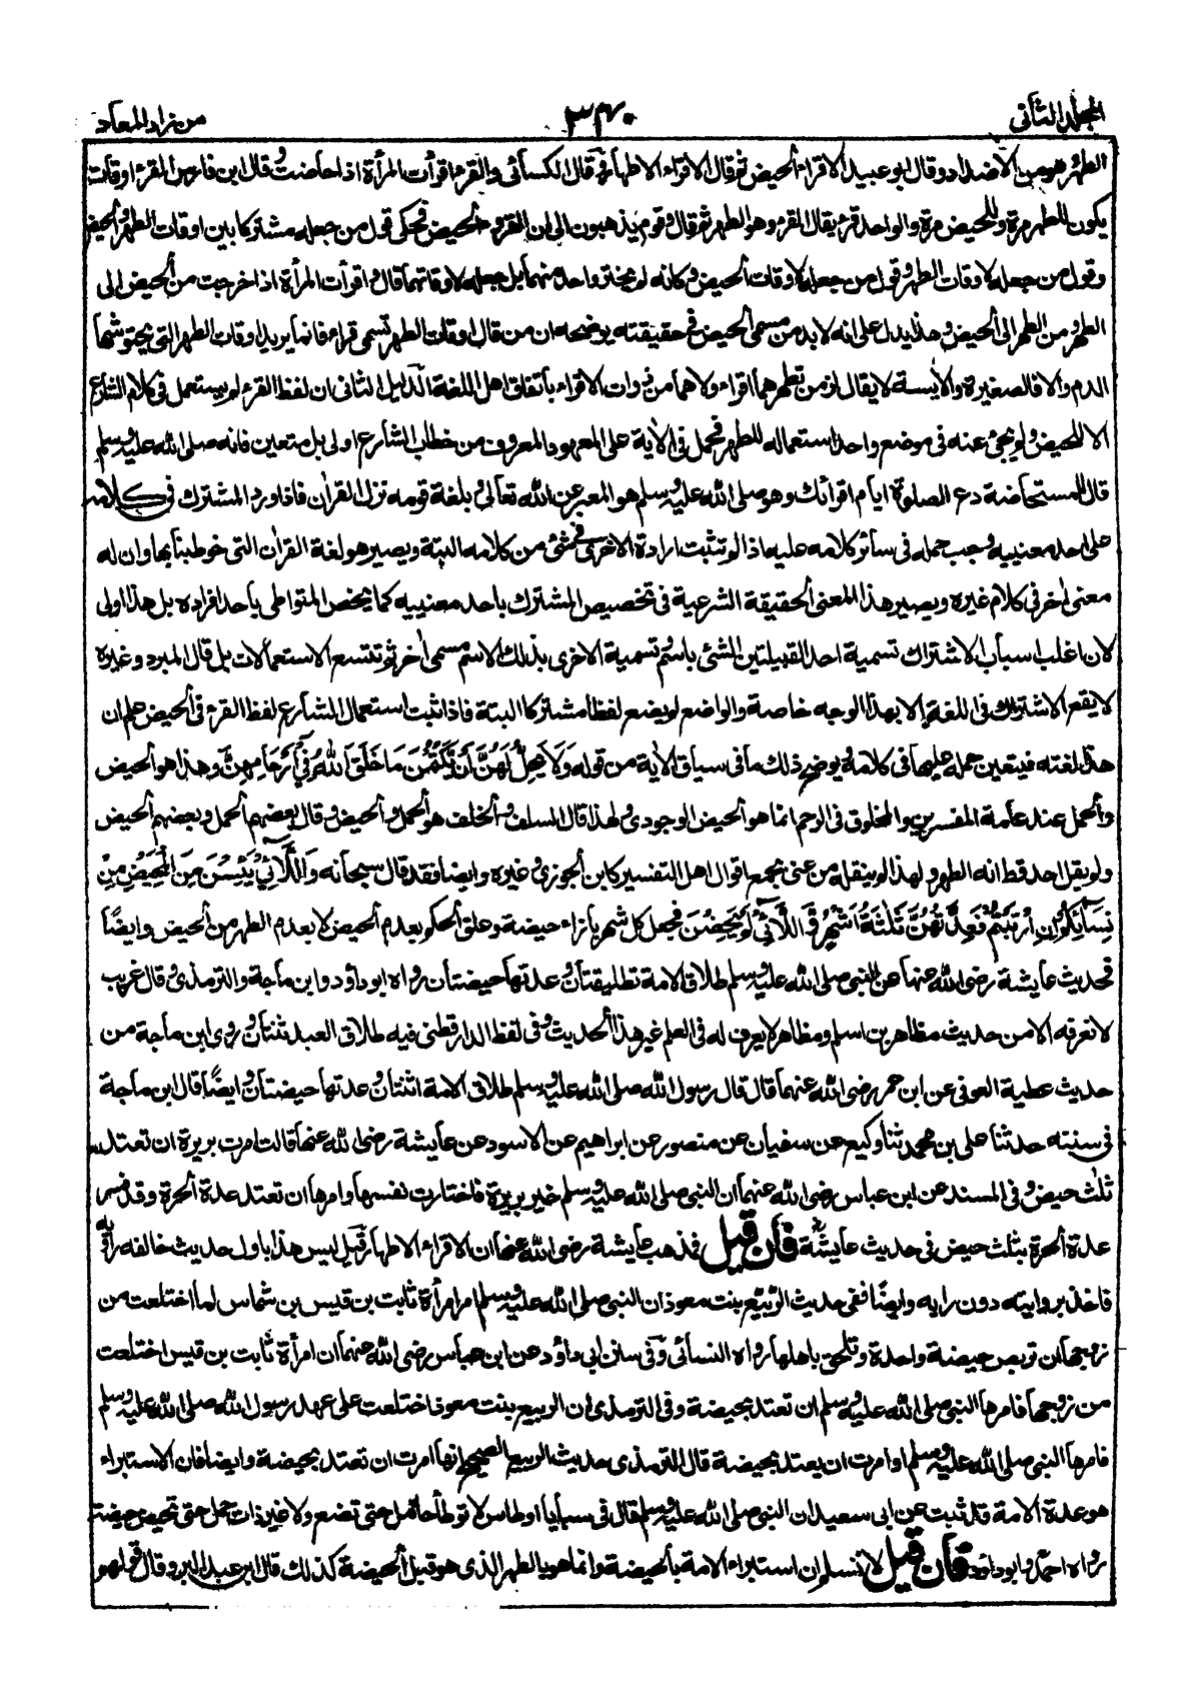 المجلد الثانی
۳۴۰
من زاد المعاد
الطهر هو من الاضداد و قال ابو عبيد الاقراء الحيض ثم قال الاقراء الاطهار و قال الكسائی والفراء اقرأت المرأة اذا حاضت و قال ابن فارس القرء اوقات
يكون للطهر مرة وللحيض مرة والواحد قرء يقال القرء وهو الطهر ثم قال وقوم يذهبون الى ان القرء الحيض فحكى قول من جعله مشتركا بين اوقات الطهر والحيض
وقول من جعله لاوقات الطهر وقول من جعله لاوقات الحيض وكانه لم يختر واحدا منهما بل جعله لاوقاتهما قال و اقرأت المرأة اذا خرجت من الحيض الى
الطهر ومن الطهر الى الحيض وهذا يدل على انه لا بد من مسمى الحيض فی حقيقته يوضحه ان من قال اوقات الطهر تسمى قراء فانما يريد اوقات الطهر التی يحتوشها
الدم والا فالصغيرة والآيسة لا يقال لزمن تطهرهما اقراء ولا هما من ذوات الاقراء باتفاق اهل اللغة الدليل الثانی ان لفظ القرء لم يستعمل فی كلام الشارع
الا للحيض ولم يجئ عنه فی موضع واحد استعماله للطهر فحمله فی الآية على المعهود المعروف من خطاب الشارع اولى بل متعين فانه صلى الله عليه وسلم
قال للمستحاضة دع الصلوة ايام اقرائك وهو صلى الله عليه وسلم هو المعبر عن الله تعالى و بلغة قومه نزل القرآن فاذا ورد المشترك فی كلامه
على احد معنييه وجب حمله فی سائر كلامه عليه اذا لم تثبت ارادة الاخرى فی شئ من كلامه البتة ويصير هو لغة القرآن التی خوطبنا بها وان له
معنى اٰخر فی كلام غيره ويصير هذا المعنى الحقيقة الشرعية فی تخصيص المشترك باحد معنييه كما يخص المتواطی باحد افراده بل هذا اولى
لان اغلب اسباب الاشتراك تسمية احد القبيلتين الشئ باسم وتسمية الاخرى بذلك الاسم مسمى اٰخر ثم تتسع الاستعمالات بل قال المبرد وغيره
لا يقع الاشتراك فی اللغة الا بهذا الوجه خاصة والواضع لم يضع لفظا مشتركا البتة فاذا ثبت استعمال الشارع لفظ القرء فی الحيض علم ان
هذا لغته فيتعين حمله عليها فی كلامه ويوضح ذلك ما فی سياق الآية من قوله وَلَا يَحِلُّ لَهُنَّ أَنْ يَكْتُمْنَ مَا خَلَقَ اللّٰهُ فِیْ أَرْحَامِهِنَّ وهذا هو الحيض
والحمل عند عامة المفسرين والمخلوق فی الرحم انما هو الحيض الوجودی ولهذا قال السلف والخلف هو الحمل والحيض وقال بعضهم الحمل وبعضهم الحيض
ولم يقل احد قط انه الطهر ولهذا لم ينقله من عنى بجمع اقوال اهل التفسير كابن الجوزی وغيره وايضا فقد قال سبحانه وَاللَّائِیْ يَئِسْنَ مِنَ الْمَحِيْضِ مِنْ
نِسَائِكُمْ إِنِ ارْتَبْتُمْ فَعِدَّتُهُنَّ ثَلٰثَةُ أَشْهُرٍ وَّ اللَّائِیْ لَمْ يَحِضْنَ فجعل كل شهر بازاء حيضة وعلق الحكم بعدم الحيض لا بعدم الطهر من الحيض وايضًا
فحديث عايشة رضی الله عنها عن النبی صلى الله عليه وسلم طلاق الامة تطليقتان و عدتها حيضتان رواه ابو داؤد وابن ماجة والترمذی وقال غريب
لا نعرفه الا من حديث مظاهر بن اسلم ومظاهر لا يعرف له فی العلم غير هذا الحديث و فی لفظ الدارقطنی فيه طلاق العبد ثنتان وروى ابن ماجة من
حديث عطية العوفی عن ابن عمر رضی الله عنهما قال قال رسول الله صلى الله عليه وسلم طلاق الامة اثنتان و عدتها حيضتان و ايضًا قال ابن ماجة
فی سننه حدثنا علی بن محمد ثنا وكيع عن سفيان عن منصور عن ابراهيم عن الاسود عن عايشة رضی الله عنها قالت امرت بريرة ان تعتد
ثلٰث حيض و فی المسند عن ابن عباس رضی الله عنهما ان النبی صلى الله عليه وسلم خير بريرة فاختارت نفسها وامرها ان تعتد عدة الحرة وقد فسر
عدة الحرة بثلث حيض فی حديث عايشة فان قيل فمذهب عايشة رضی الله عنها ان الاقراء الاطهار قيل ليس هذا باول حديث خالفه راويه
فاخذ بروايته دون رايه وايضًا ففی حديث الربيع بنت معوذ ان النبی صلى الله عليه وسلم امر امرأة ثابت بن قيس بن شماس لما اختلعت من
زوجها ان تربص حيضة واحدة وتلحق باهلها رواه النسائی وفی سنن ابی داؤد عن ابن عباس رضی الله عنهما ان امرأة ثابت بن قيس اختلعت
من زوجها فامرها النبی صلى الله عليه وسلم ان تعتد بحيضة وفی الترمذی ان الربيع بنت معوذ اختلعت على عهد رسول الله صلى الله عليه وسلم
فامرها النبی صلى الله عليه وسلم او امرت ان يعتد بحيضة قال الترمذی حديث الربيع الصحيح انها امرت ان تعتد بحيضة وايضا فان الاستبراء
هو عدة الامة وقد ثبت عن ابی سعيد ان النبی صلى الله عليه وسلم قال فی سبايا اوطاس لا توطأ حامل حتى تضع ولا غير ذات حمل حتى تحيض حيضة
رواه احمد وابو داؤد فان قيل لا نسلم ان استبراء الامة بالحيضة وانما هو بالطهر الذی هو قبل الحيضة كذلك قال ابن عبد البر وقال قولهم